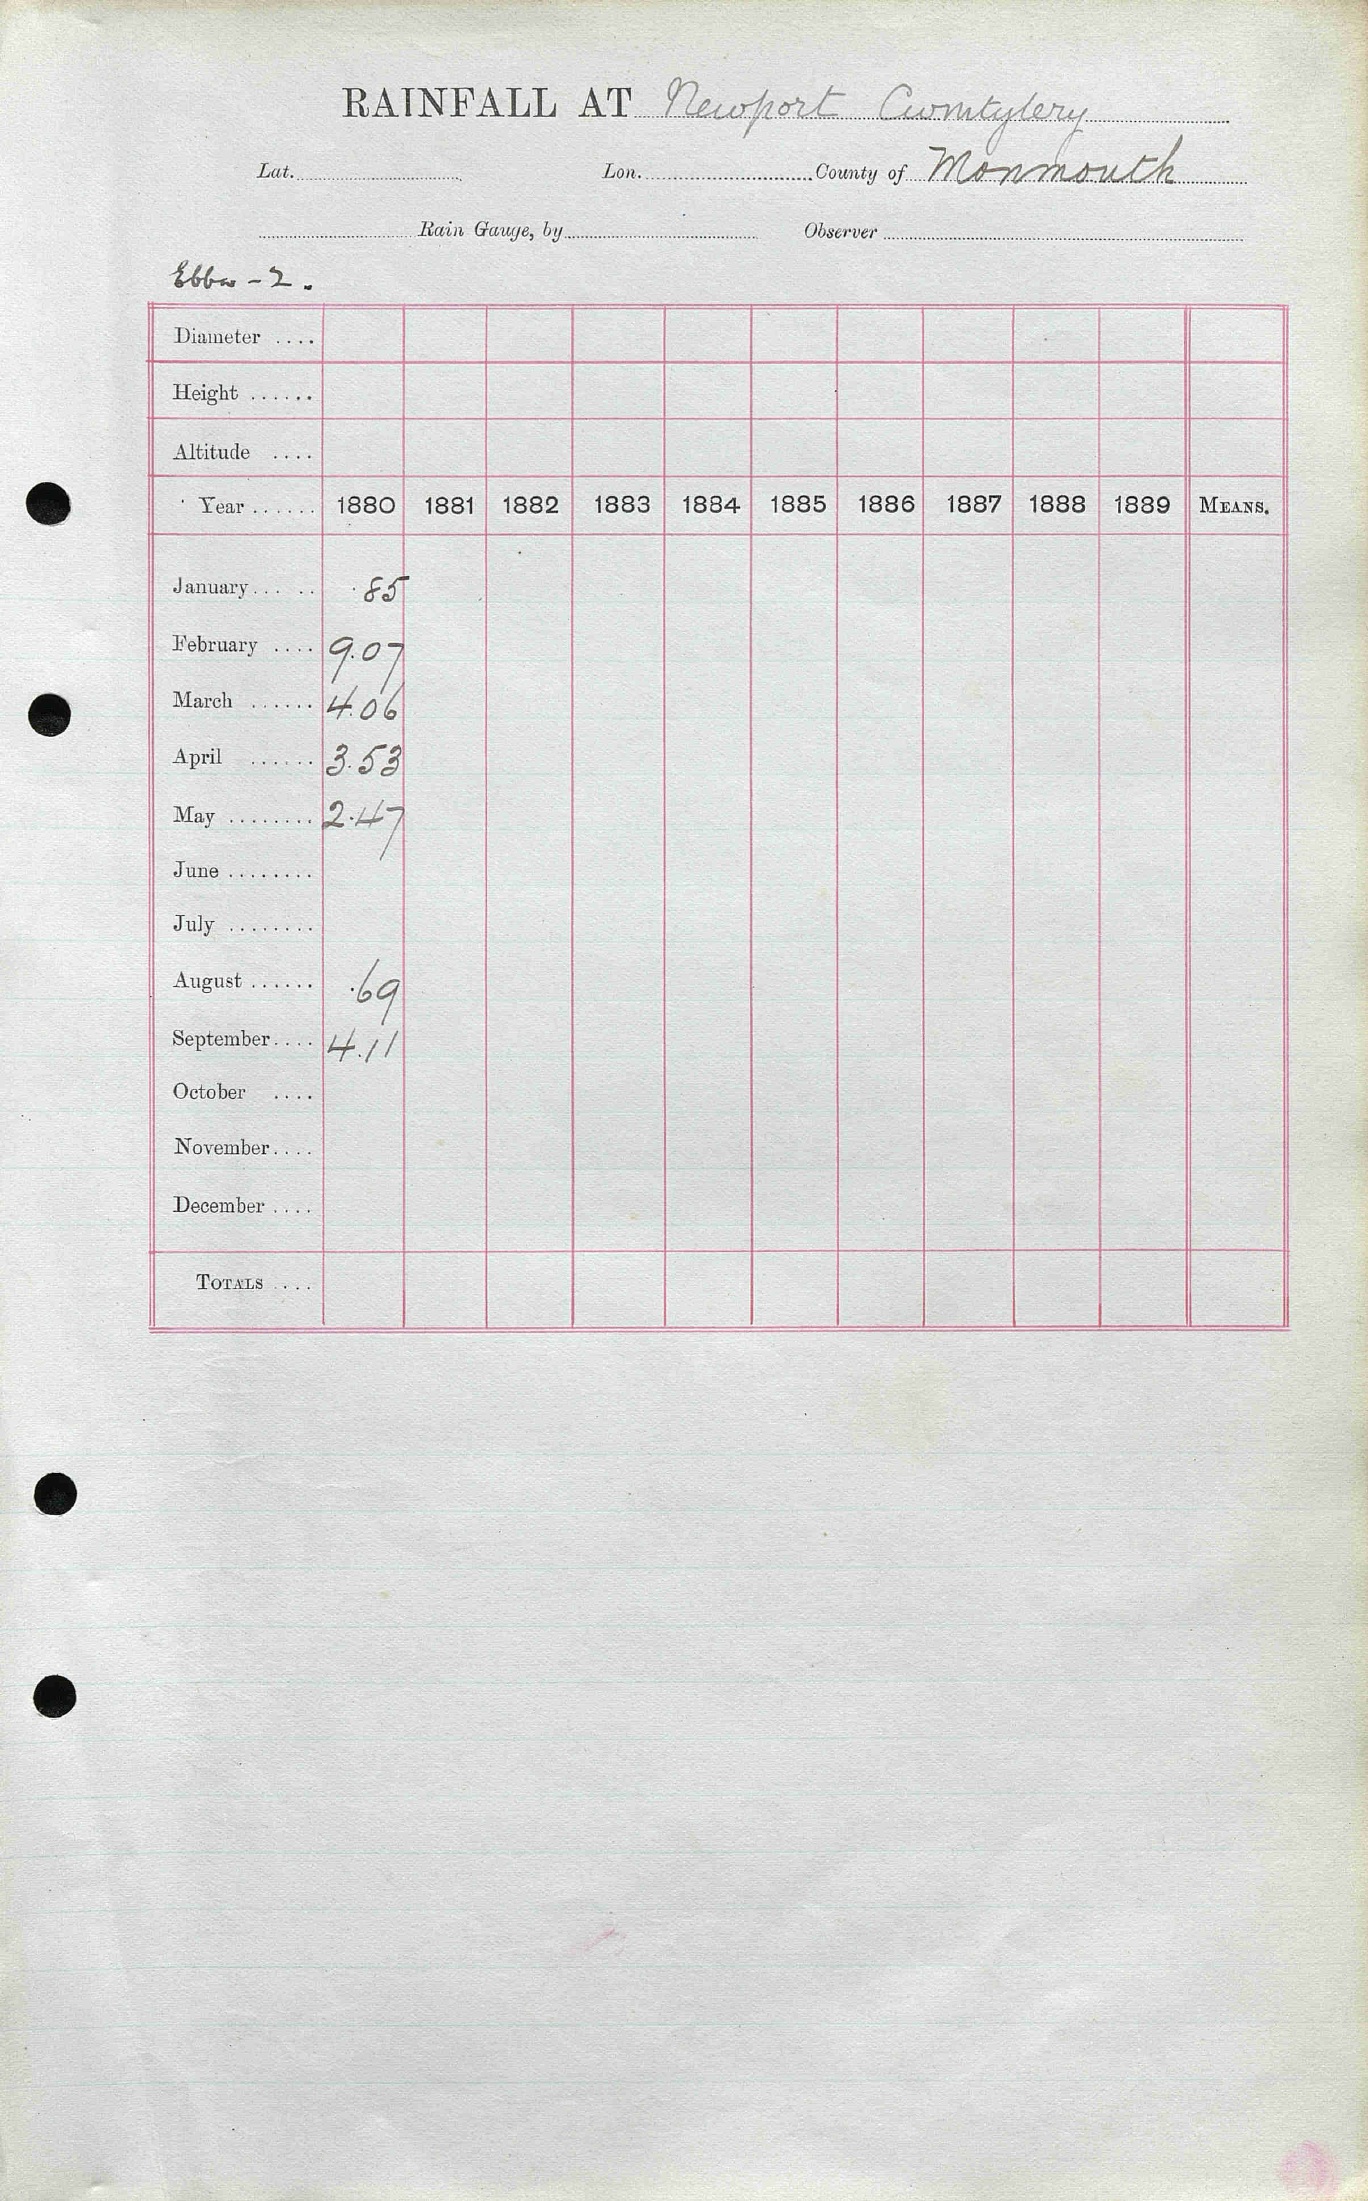 RAINFALL AT Newport Cwmtylery
Lat. Lon. County of Monmouth
Rain Gauge, by Observer
Ebbw - 2.
Diameter ....
Height ......
Altitude ....
Year ...... 1880 1881 1882 1883 1884 1885 1886 1887 1888 1889 MEANS.
January ... .. .85
February .... 9.07
March ...... 4.06
April ...... 3.53
May ........ 2.47
June ........
July ........
August ...... .69
September .... 4.11
October ....
November ....
December ....
TOTALS ....